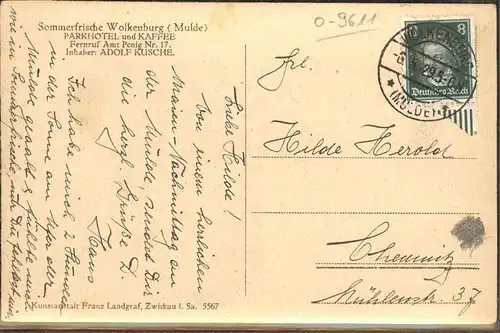 Sommerfrische Wolkenburg (Mulde)
PARKHOTEL und KAFFEE
Fernruf Amt Penig Nr. 17.
Inhaber: ADOLF KUSCHE.
o-9611
8
Deutsches Reich
WOLKENBURG
(MULDE)
Frl.
Hilde Herold
Chemnitz
Mühlenstr. 37
Liebe Hilde!
Von einem herrlichen
Maien-Nachmittag an
der Mulde, sendet Dir
die herzl. Grüße D.
Hans
Ich habe mich 2 Stunden
in der Sonne am Ufer der
Mulde geaalt & fühlte mich
wie in Sommerfrische, nur Du fehltest
Kunstanstalt Franz Landgraf, Zwickau i. Sa. 5567